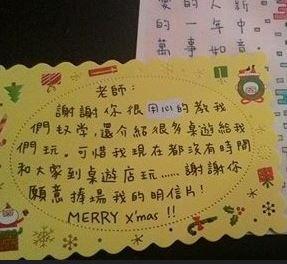 的人新
的一年中
萬事如意
老師:
謝謝你很用心的教我
們奴學,還介紹很多桌遊給我
們玩。可惜我現在都沒有時間
和大家到桌遊店玩......謝謝你
願意捧場我的明信片!
MERRY X'mas !!